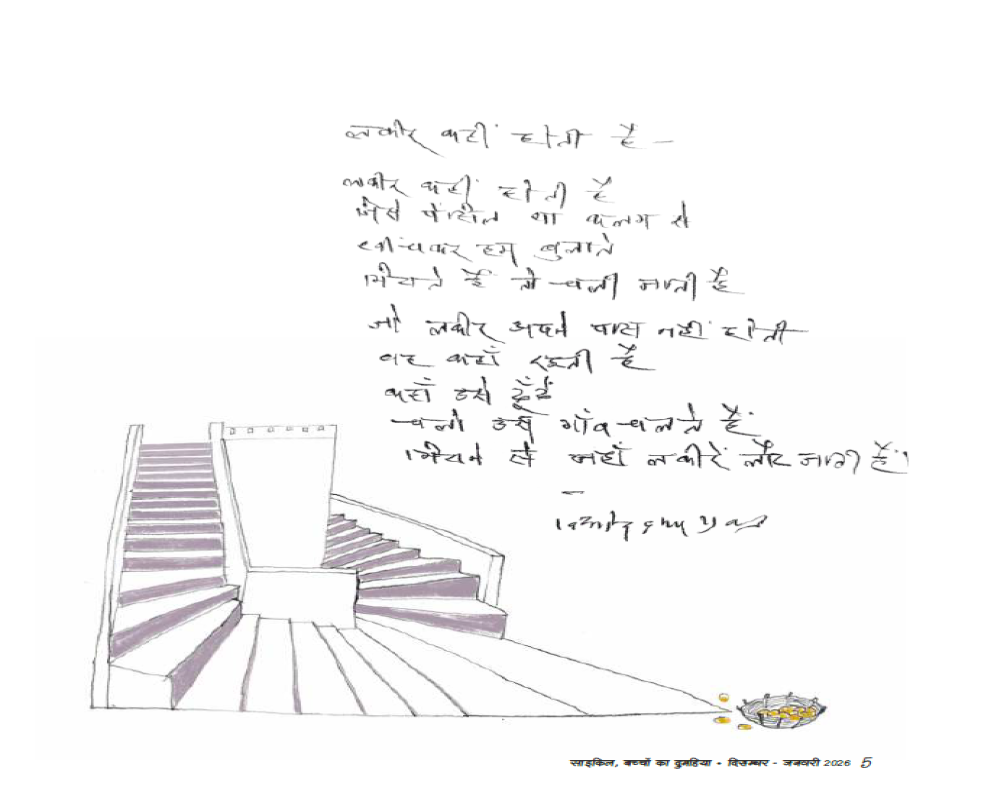 लकीर कहीं होती है –
लकीर कहीं होती है
जैसे पेंसिल या कलम से
खींचकर हम बुलाते
मिटाते हैं तो चली जाती है
जो लकीर अपने पास नहीं होती
वह कहाँ रहती है
कहाँ उसे ढूँढें
चलो उसे गाँव चलते हैं
जहाँ लकीरें लौट जाती हैं।
साइकिल, बच्चों का दुमहिया • दिसम्बर - जनवरी 2026 5